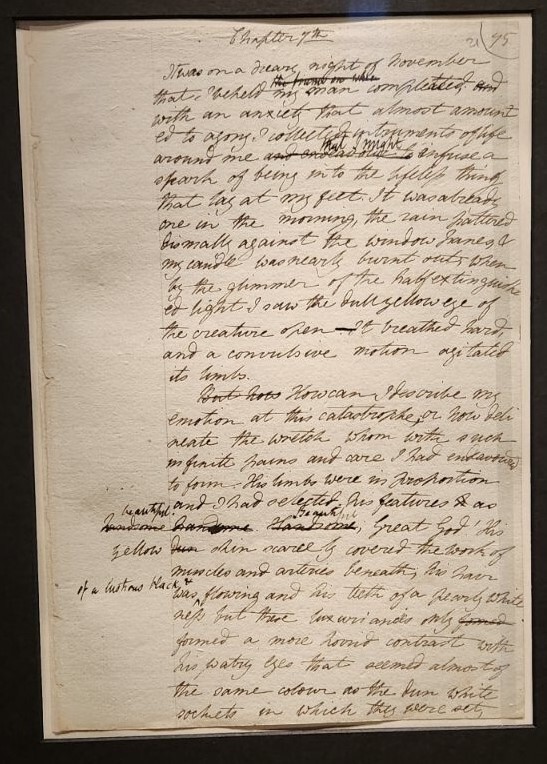 Chapter 7th
95
It was on a dreary night of November
the frame on whic
that I beheld my man completed, and
with an anxiety that almost amount
ed to agony I collected instruments of life
that I might
around me and endeavour to infuse a
spark of being into the lifeless thing
that lay at my feet. It was already
one in the morning, the rain pattered
dismally against the window panes, &
my candle was nearly burnt out, when
by the glimmer of the half extinguish
ed light I saw the dull yellow eye of
the creature open—It breathed hard,
and a convulsive motion agitated
its limbs.
But how How can I describe my
emotion at this catastrophe, or how deli
neate the wretch whom with such
infinite pains and care I had endeavoured
to form. His limbs were in proportion
and I had selected his features & as
beautiful. Beautiful
handsome handsome Handsome, Great God! His
yellow dun skin scarcely covered the work of
muscles and arteries beneath, his hair
of a lustrous black &
was flowing and his teeth of a pearly white
ness but these luxuriancies only formed
formed a more horrid contrast with
his watry eyes that seemed almost of
the same colour as the dun white
sockets in which they were set,